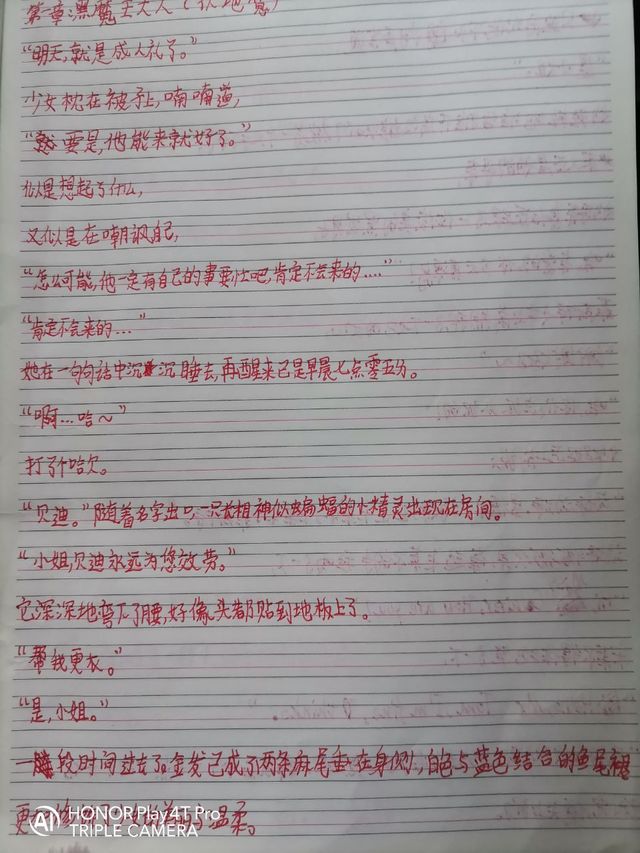 第一章:黑魔王大人(伏地魔)
“明天,就是成人礼了。”
少女枕在被子上,喃喃道,
“要是,他能来就好了。”
似是想起了什么,
又似是在嘲讽自己,
“怎么可能,他一定有自己的事要忙吧,肯定不会来的....”
“肯定不会来的...”
她在一句句话中沉沉睡去,再醒来已是早晨七点零五分。
“啊...哈～”
打了个哈欠。
“贝迪。”随着名字出口,一只长相神似蝙蝠的小精灵出现在房间。
“小姐,贝迪永远为您效劳。”
它深深地弯下了腰,好像头都贴到地板上了。
“帮我更衣。”
“是,小姐。”
一段时间过去了。金发已成了两条麻尾垂在身侧,白色与蓝色结合的鱼尾裙
更 温柔。
AI HONOR Play4T Pro
TRIPLE CAMERA